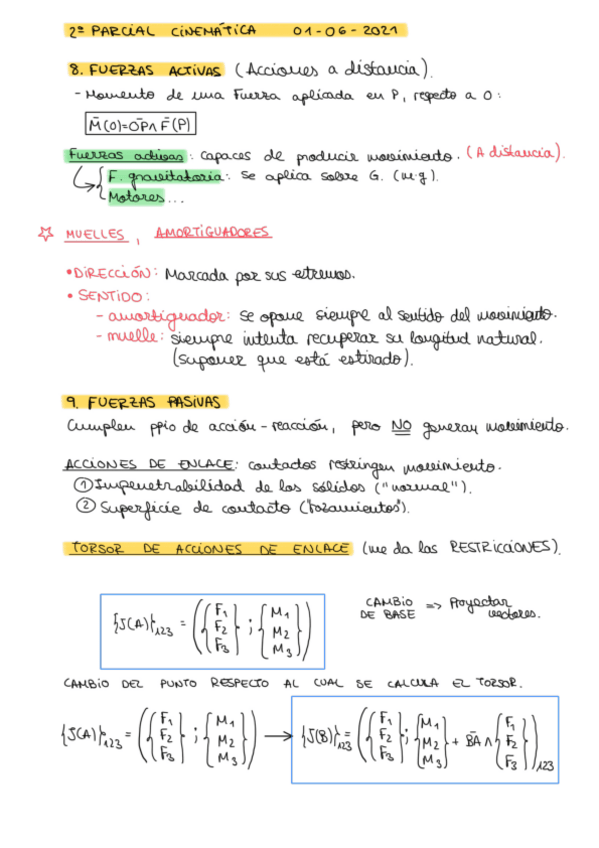 2º PARCIAL CINEMÁTICA 01-06-2021
8. FUERZAS ACTIVAS (Acciones a distancia).
- Momento de una Fuerza aplicada en P, respecto a O:
M̄(O)=ŌP∧F̄(P)
Fuerzas activas: capaces de producir movimiento. (A distancia).
F. gravitatoria: se aplica sobre G. (m·g).
Motores...
☆ MUELLES, AMORTIGUADORES
• DIRECCIÓN: Marcada por sus extremos.
• SENTIDO:
- amortiguador: se opone siempre al sentido del movimiento.
- muelle: siempre intenta recuperar su longitud natural.
(suponer que está estirado).
9. FUERZAS PASIVAS
Cumplen ppio de acción-reacción, pero NO generan movimiento.
ACCIONES DE ENLACE: contactos restringen movimiento.
① Impenetrabilidad de los sólidos ("normal").
② Superficie de contacto ("rozamientos").
TORSOR DE ACCIONES DE ENLACE (me da las RESTRICCIONES).
{J(A)}₁₂₃ = ({F₁ F₂ F₃} ; {M₁ M₂ M₃})
CAMBIO DE BASE => Proyectar vectores.
CAMBIO DEL PUNTO RESPECTO AL CUAL SE CALCULA EL TORSOR.
{J(A)}₁₂₃ = ({F₁ F₂ F₃} ; {M₁ M₂ M₃}) → {J(B)}₁₂₃ = ({F₁ F₂ F₃} ; {M₁ M₂ M₃} + B̄A ∧ {F₁ F₂ F₃})₁₂₃